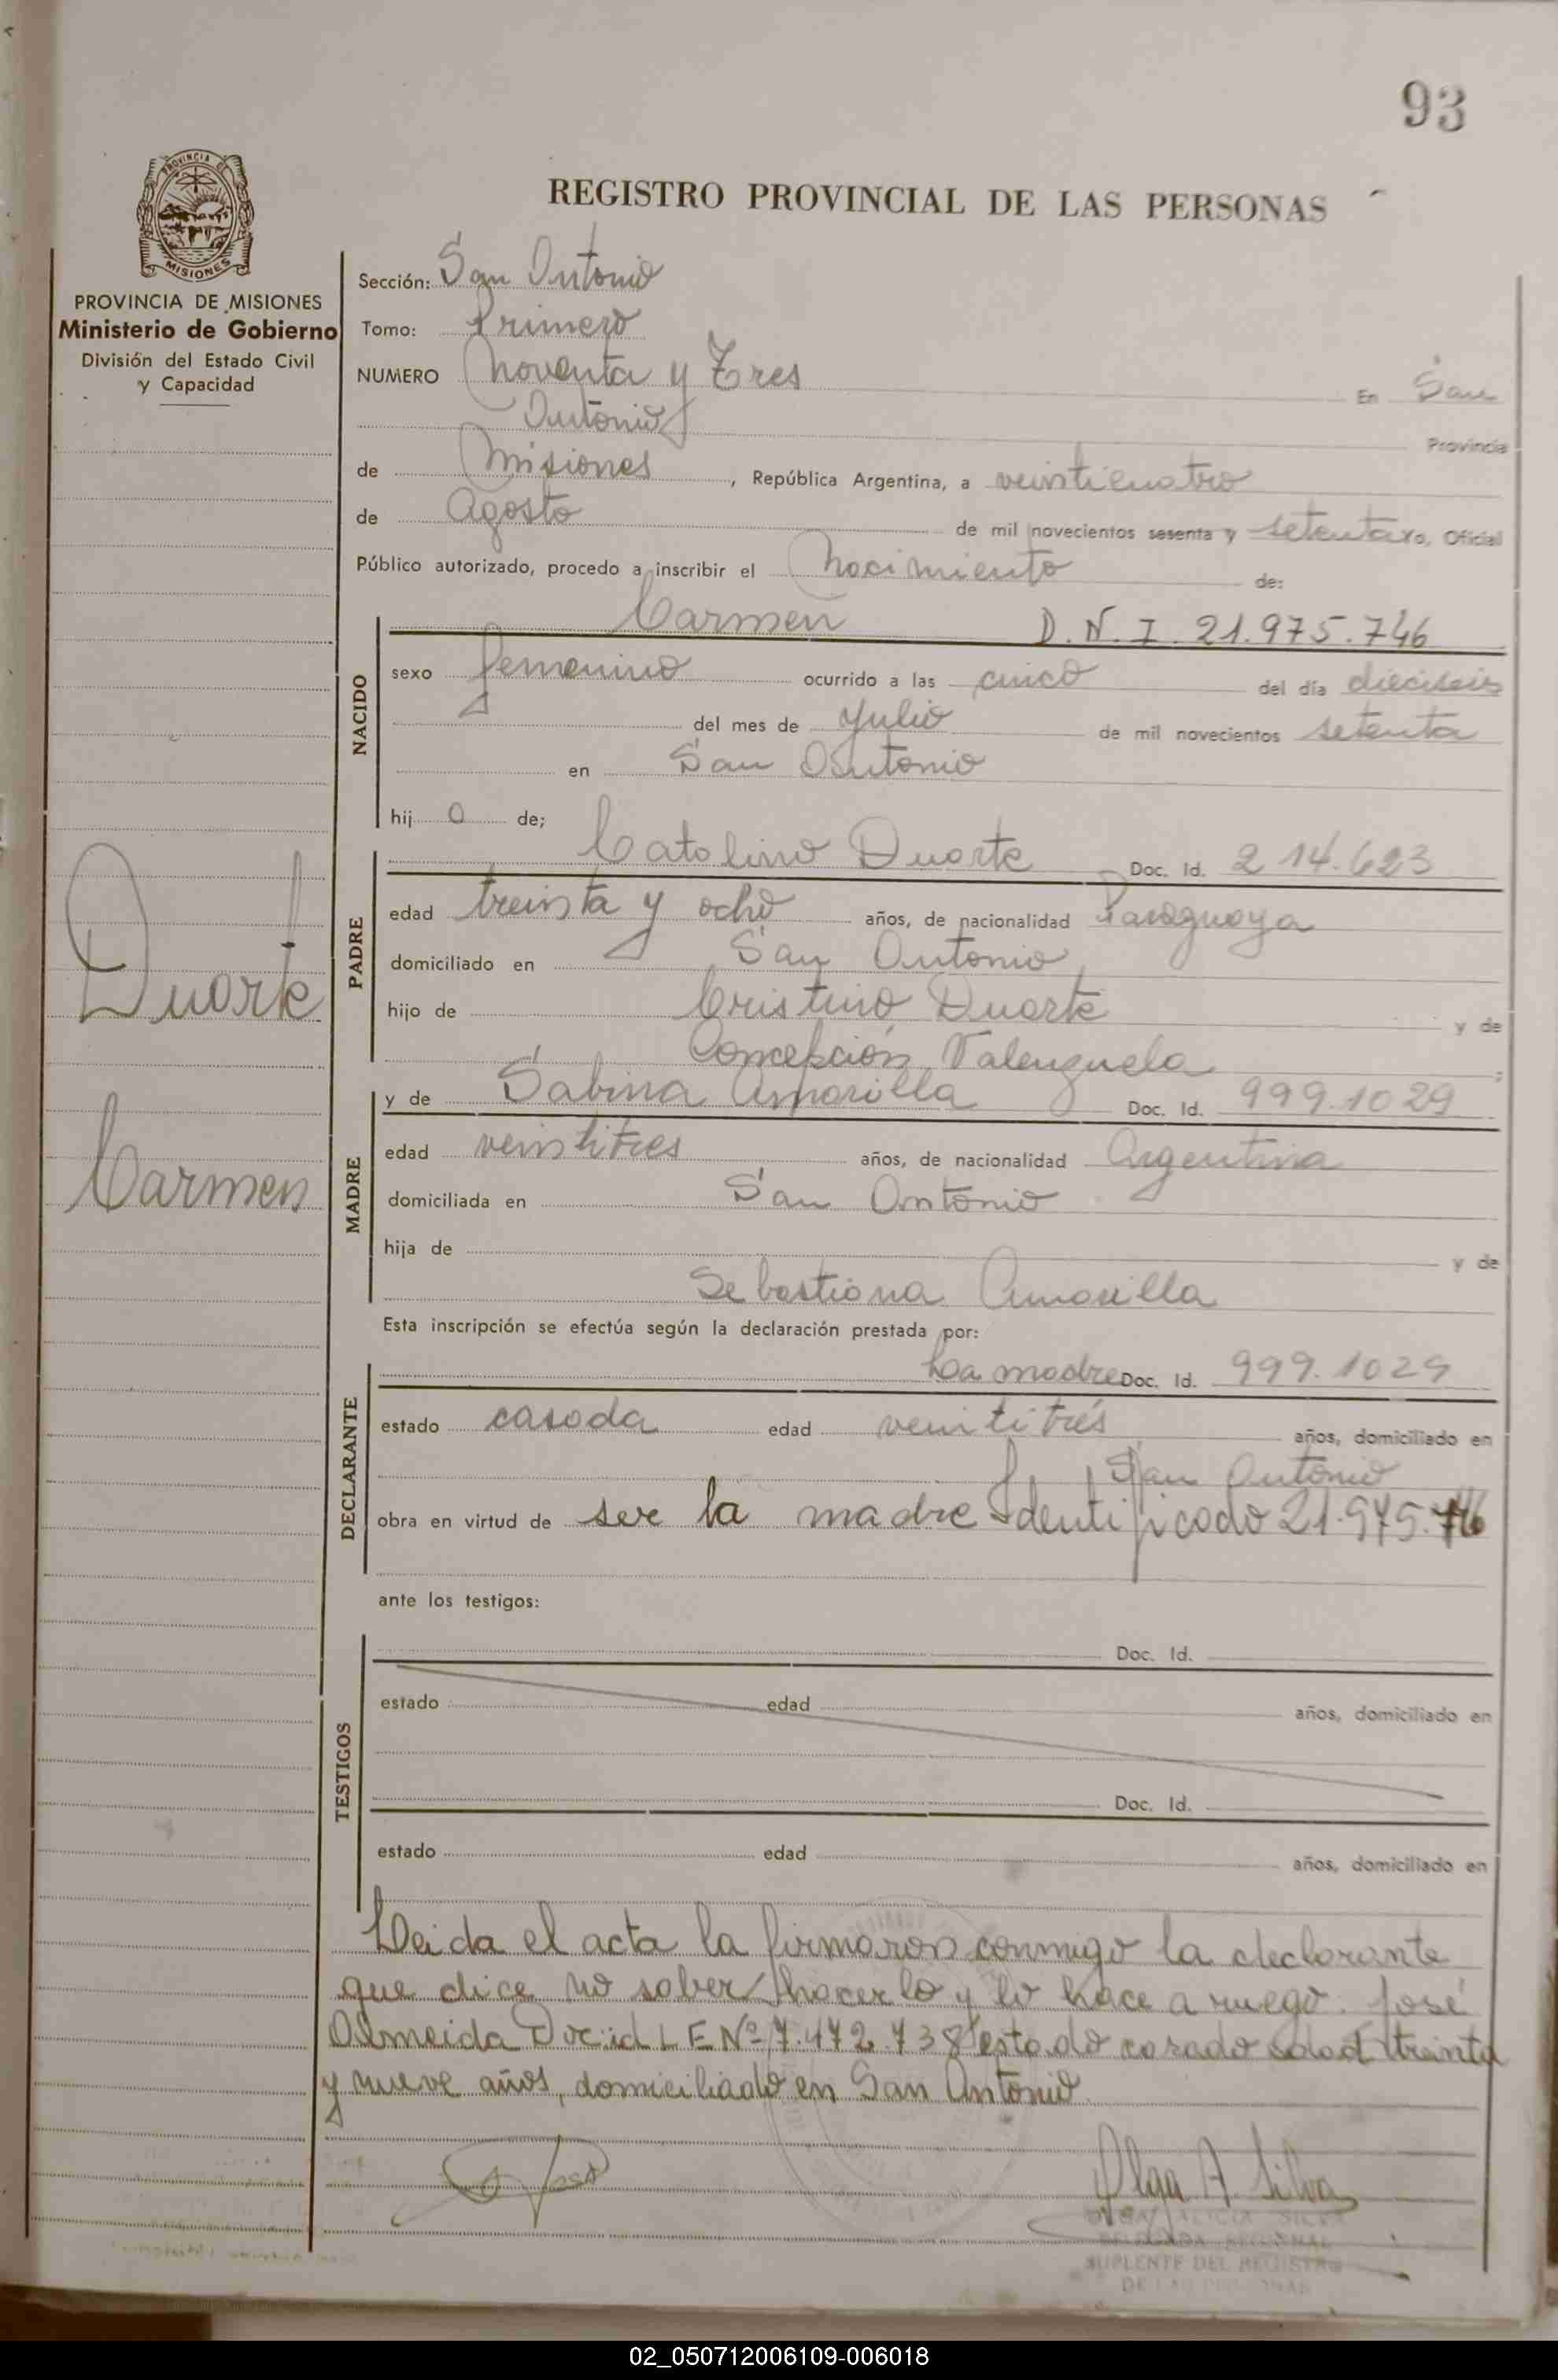 93
REGISTRO PROVINCIAL DE LAS PERSONAS
PROVINCIA DE MISIONES
PROVINCIA DE MISIONES
Ministerio de Gobierno
División del Estado Civil
y Capacidad
Sección: San Antonio
Tomo: Primero
NUMERO Noventa y Tres En San
Antonio Provincia
de Misiones, República Argentina, a veinticuatro
de Agosto de mil novecientos sesenta y setenta yo, Oficial
Público autorizado, procedo a inscribir el Nacimiento de:
Carmen D.N.I. 21.975.746
NACIDO
sexo femenino ocurrido a las cinco del día dieciseis
del mes de Julio de mil novecientos setenta
en San Antonio
hij a de;
Duarte
Carmen
PADRE
Catolino Duarte Doc. Id. 214.623
edad treinta y ocho años, de nacionalidad Paraguaya
domiciliado en San Antonio
hijo de Cristino Duarte y de
Concepción Valenzuela
MADRE
y de Sabina Amarilla Doc. Id. 999.1029
edad veintitres años, de nacionalidad Argentina
domiciliada en San Antonio
hija de y de
Sebastiana Amarilla
Esta inscripción se efectúa según la declaración prestada por:
DECLARANTE
La madre Doc. Id. 999.1029
estado casada edad veintitrés años, domiciliado en
San Antonio
obra en virtud de ser la madre Identificado 21.975.746
ante los testigos:
TESTIGOS
Doc. Id.
estado edad años, domiciliado en
Doc. Id.
estado edad años, domiciliado en
Leida el acta la firmaron conmigo la declarante
que dice no saber hacerlo y lo hace a ruego. José
Almeida Doc:id L E Nº 7.472.738 estado casado edad treinta
y nueve años, domiciliado en San Antonio
Olga A. Silva
OLGA ALICIA SILVA
DELEGADA REGIONAL
SUPLENTE DEL REGISTRO
DE LAS PERSONAS
02_050712006109-006018